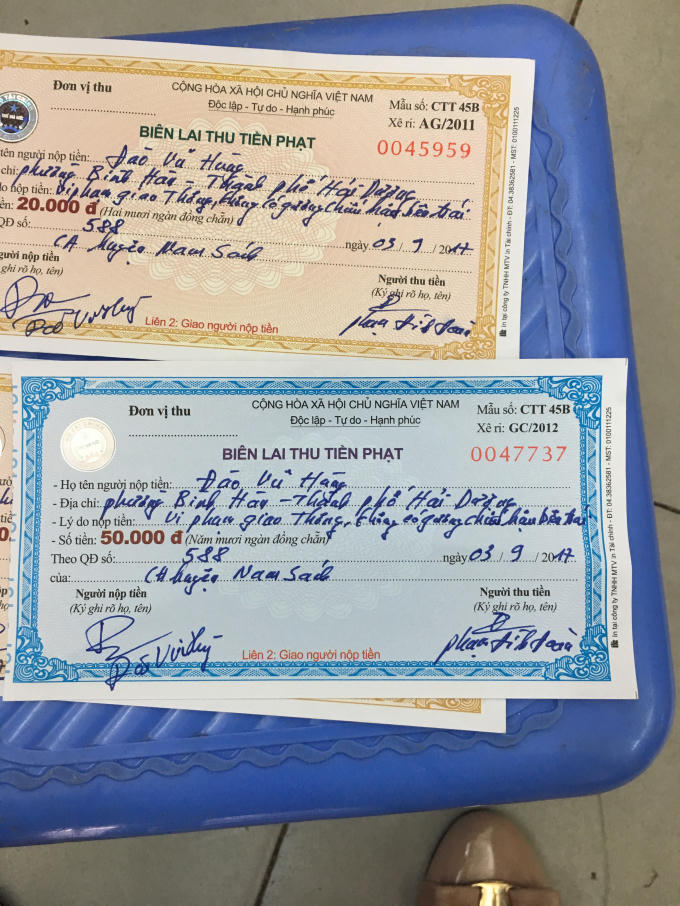 Đơn vị thu
CỘNG HÒA XÃ HỘI CHỦ NGHĨA VIỆT NAM
Độc lập - Tự do - Hạnh phúc
Mẫu số: CTT 45B
Xê ri: AG/2011
BIÊN LAI THU TIỀN PHẠT
0045959
tên người nộp tiền: Đào Vũ Hưng
chỉ: phường Bình Hàn - Thành phố Hải Dương
do nộp tiền: Vi phạm giao Thông, không có gương chiếu hậu bên trái
ền: 20.000 đ (Hai mươi ngàn đồng chẵn)
QĐ số: 588 ngày 03 / 9 / 2017
CA huyện Nam Sách
gười nộp tiền
ghi rõ họ, tên)
Người thu tiền
(Ký ghi rõ họ, tên)
Liên 2: Giao người nộp tiền
In tại công ty TNHH MTV in Tài chính - ĐT: 04.38362581 - MST: 0100111225
Đơn vị thu
CỘNG HÒA XÃ HỘI CHỦ NGHĨA VIỆT NAM
Độc lập - Tự do - Hạnh phúc
Mẫu số: CTT 45B
Xê ri: GC/2012
BIÊN LAI THU TIỀN PHẠT
0047737
- Họ tên người nộp tiền: Đào Vũ Hưng
- Địa chỉ: phường Bình Hàn - Thành phố Hải Dương
- Lý do nộp tiền: Vi phạm giao Thông, không có gương chiếu hậu bên trái
- Số tiền: 50.000 đ (Năm mươi ngàn đồng chẵn)
Theo QĐ số: 588 ngày 03 / 9 / 2017
của: CA huyện Nam Sách
Người nộp tiền
(Ký ghi rõ họ, tên)
Người thu tiền
(Ký ghi rõ họ, tên)
Liên 2: Giao người nộp tiền
In tại công ty TNHH MTV in Tài chính - ĐT: 04.38362581 - MST: 0100111225